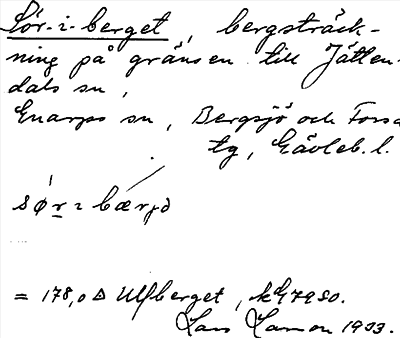 Sör-i-berget, bergsträck-
ning på gränsen till Jätten-
dals sn,
Enarps sn, Bergsjö och Forsa
tg, Gävleb. l.
sør i bærjə
= 178,0 Δ Ulfberget,
Lars Larsson 1933.